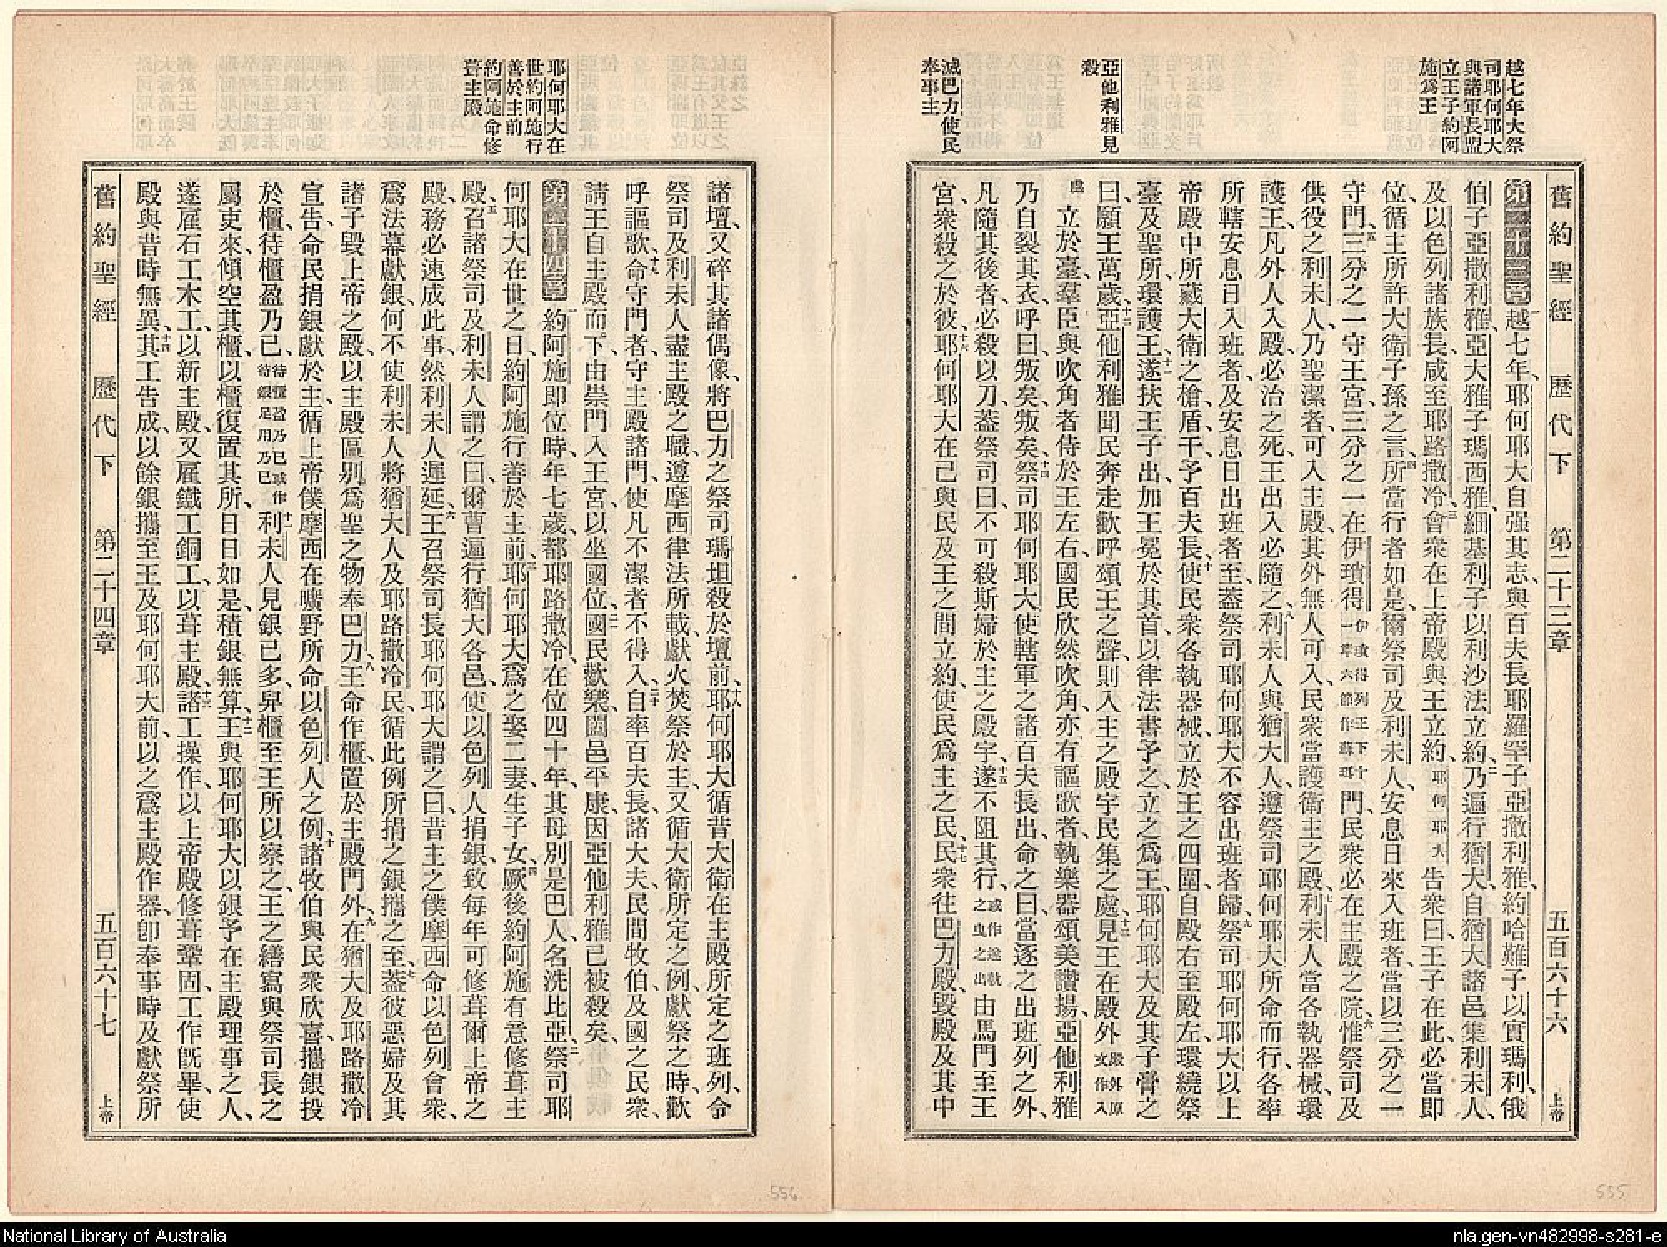 越七年大祭
司耶何耶大
與諸軍長盟
立王子約阿
施爲王
亞他利雅見
殺
滅巴力使民
奉事主
舊約聖經 歷代下 第二十三章 五百六十六 上帝
第二十三章一越七年、耶何耶大自强其志、與百夫長耶羅罕子亞撒利雅、約哈難子以實瑪利、俄
伯子亞撒利雅、亞大雅子瑪西雅、細基利子以利沙法立約、二乃遍行猶大、自猶大諸邑集利未人、
及以色列諸族長、咸至耶路撒冷、三會衆在上帝殿與王立約、耶何耶大告衆曰、王子在此、必當即
位、循主所許大衛子孫之言、四所當行者如是、爾祭司及利未人、安息日來入班者、當以三分之一
守門、五三分之一守王宮、三分之一在伊瑣得門、民衆必在主殿之院、六惟祭司及
供役之利未人、乃聖潔者、可入主殿、其外無人可入、民衆當護衛主之殿、七利未人當各執器械環
護王、凡外人入殿必治之死、王出入必隨之、八利未人與猶大人、遵祭司耶何耶大所命而行、各率
所轄安息日入班者、及安息日出班者至、蓋祭司耶何耶大不容出班者歸、九祭司耶何耶大以上
帝殿中所藏大衛之槍盾干予百夫長、十使民衆各執器械、立於王之四圍、自殿右至殿左、環繞祭
臺及聖所、環護王、十一遂扶王子出、加王冕於其首、以律法書予之、立之爲王、耶何耶大及其子膏之
曰、願王萬歲、十二亞他利雅聞民奔走歡呼頌王之聲、則入主之殿宇民集之處、十三見王在殿外
立於臺、羣臣與吹角者侍於王左右、國民欣然吹角、亦有謳歌者、執樂器頌美讚揚、亞他利雅
乃自裂其衣、呼曰、叛矣、叛矣、十四祭司耶何耶大使轄軍之諸百夫長出、命之曰、當逐之出班列之外、
凡隨其後者、必殺以刀、蓋祭司曰、不可殺斯婦於主之殿宇、十五遂不阻其行、由馬門至王
宮、衆殺之於彼、十六耶何耶大在己與民及王之間立約、使民爲主之民、十七民衆往巴力殿、毀殿及其中
耶何耶大在
世約阿施行
善於主前
約阿施命修
葺主殿
諸壇、又碎其諸偶像、將巴力之祭司瑪坦殺於壇前、十八耶何耶大循昔大衛在主殿所定之班列、令
祭司及利未人盡主殿之職、遵摩西律法所載、獻火焚祭於主、又循大衛所定之例、獻祭之時、歡
呼謳歌、十九命守門者、守主殿諸門、使凡不潔者不得入、二十自率百夫長、諸大夫、民間牧伯、及國之民衆、
請王自主殿而下、由崇門入王宮、以坐國位、二一國民歡樂、闔邑平康、因亞他利雅已被殺矣、
第二十四章一約阿施即位時、年七歲、都耶路撒冷、在位四十年、其母別是巴人、名洗比亞、二祭司耶
何耶大在世之日、約阿施行善於主前、三耶何耶大爲之娶二妻、生子女、四厥後約阿施有意修葺主
殿、五召諸祭司及利未人、謂之曰、爾曹遍行猶大各邑、使以色列人捐銀、致每年可修葺爾上帝之
殿、務必速成此事、然利未人遲延、六王召祭司長耶何耶大謂之曰、昔主之僕摩西命以色列會衆、
爲法幕獻銀、何不使利未人將猶大人及耶路撒冷民、循此例所捐之銀攜之至、七蓋彼惡婦及其
諸子毀上帝之殿、以主殿區別爲聖之物奉巴力、八王命作櫃、置於主殿門外、九在猶大及耶路撒冷
宣告、命民捐銀獻於主、循上帝僕摩西在曠野所命以色列人之例、十諸牧伯與民衆欣喜、攜銀投
於櫃、待櫃盈乃已、待櫃盈乃已或作待銀足用乃已十一利未人見銀已多、舁櫃至王所以察之、王之繕寫與祭司長之
屬吏來、傾空其櫃、以櫃復置其所、日日如是、積銀無算、十二王與耶何耶大以銀予在主殿理事之人、
遂雇石工木工、以新主殿、又雇鐵工銅工、以葺主殿、十三諸工操作、以上帝殿修葺鞏固、工作旣畢、使
殿與昔時無異、十四其工告成、以餘銀攜至王及耶何耶大前、以之爲主殿作器、卽奉事時及獻祭所
舊約聖經 歷代下 第二十四章 五百六十七 上帝
556
555
National Library of Australia
nla.gen-vn482998-s281-e